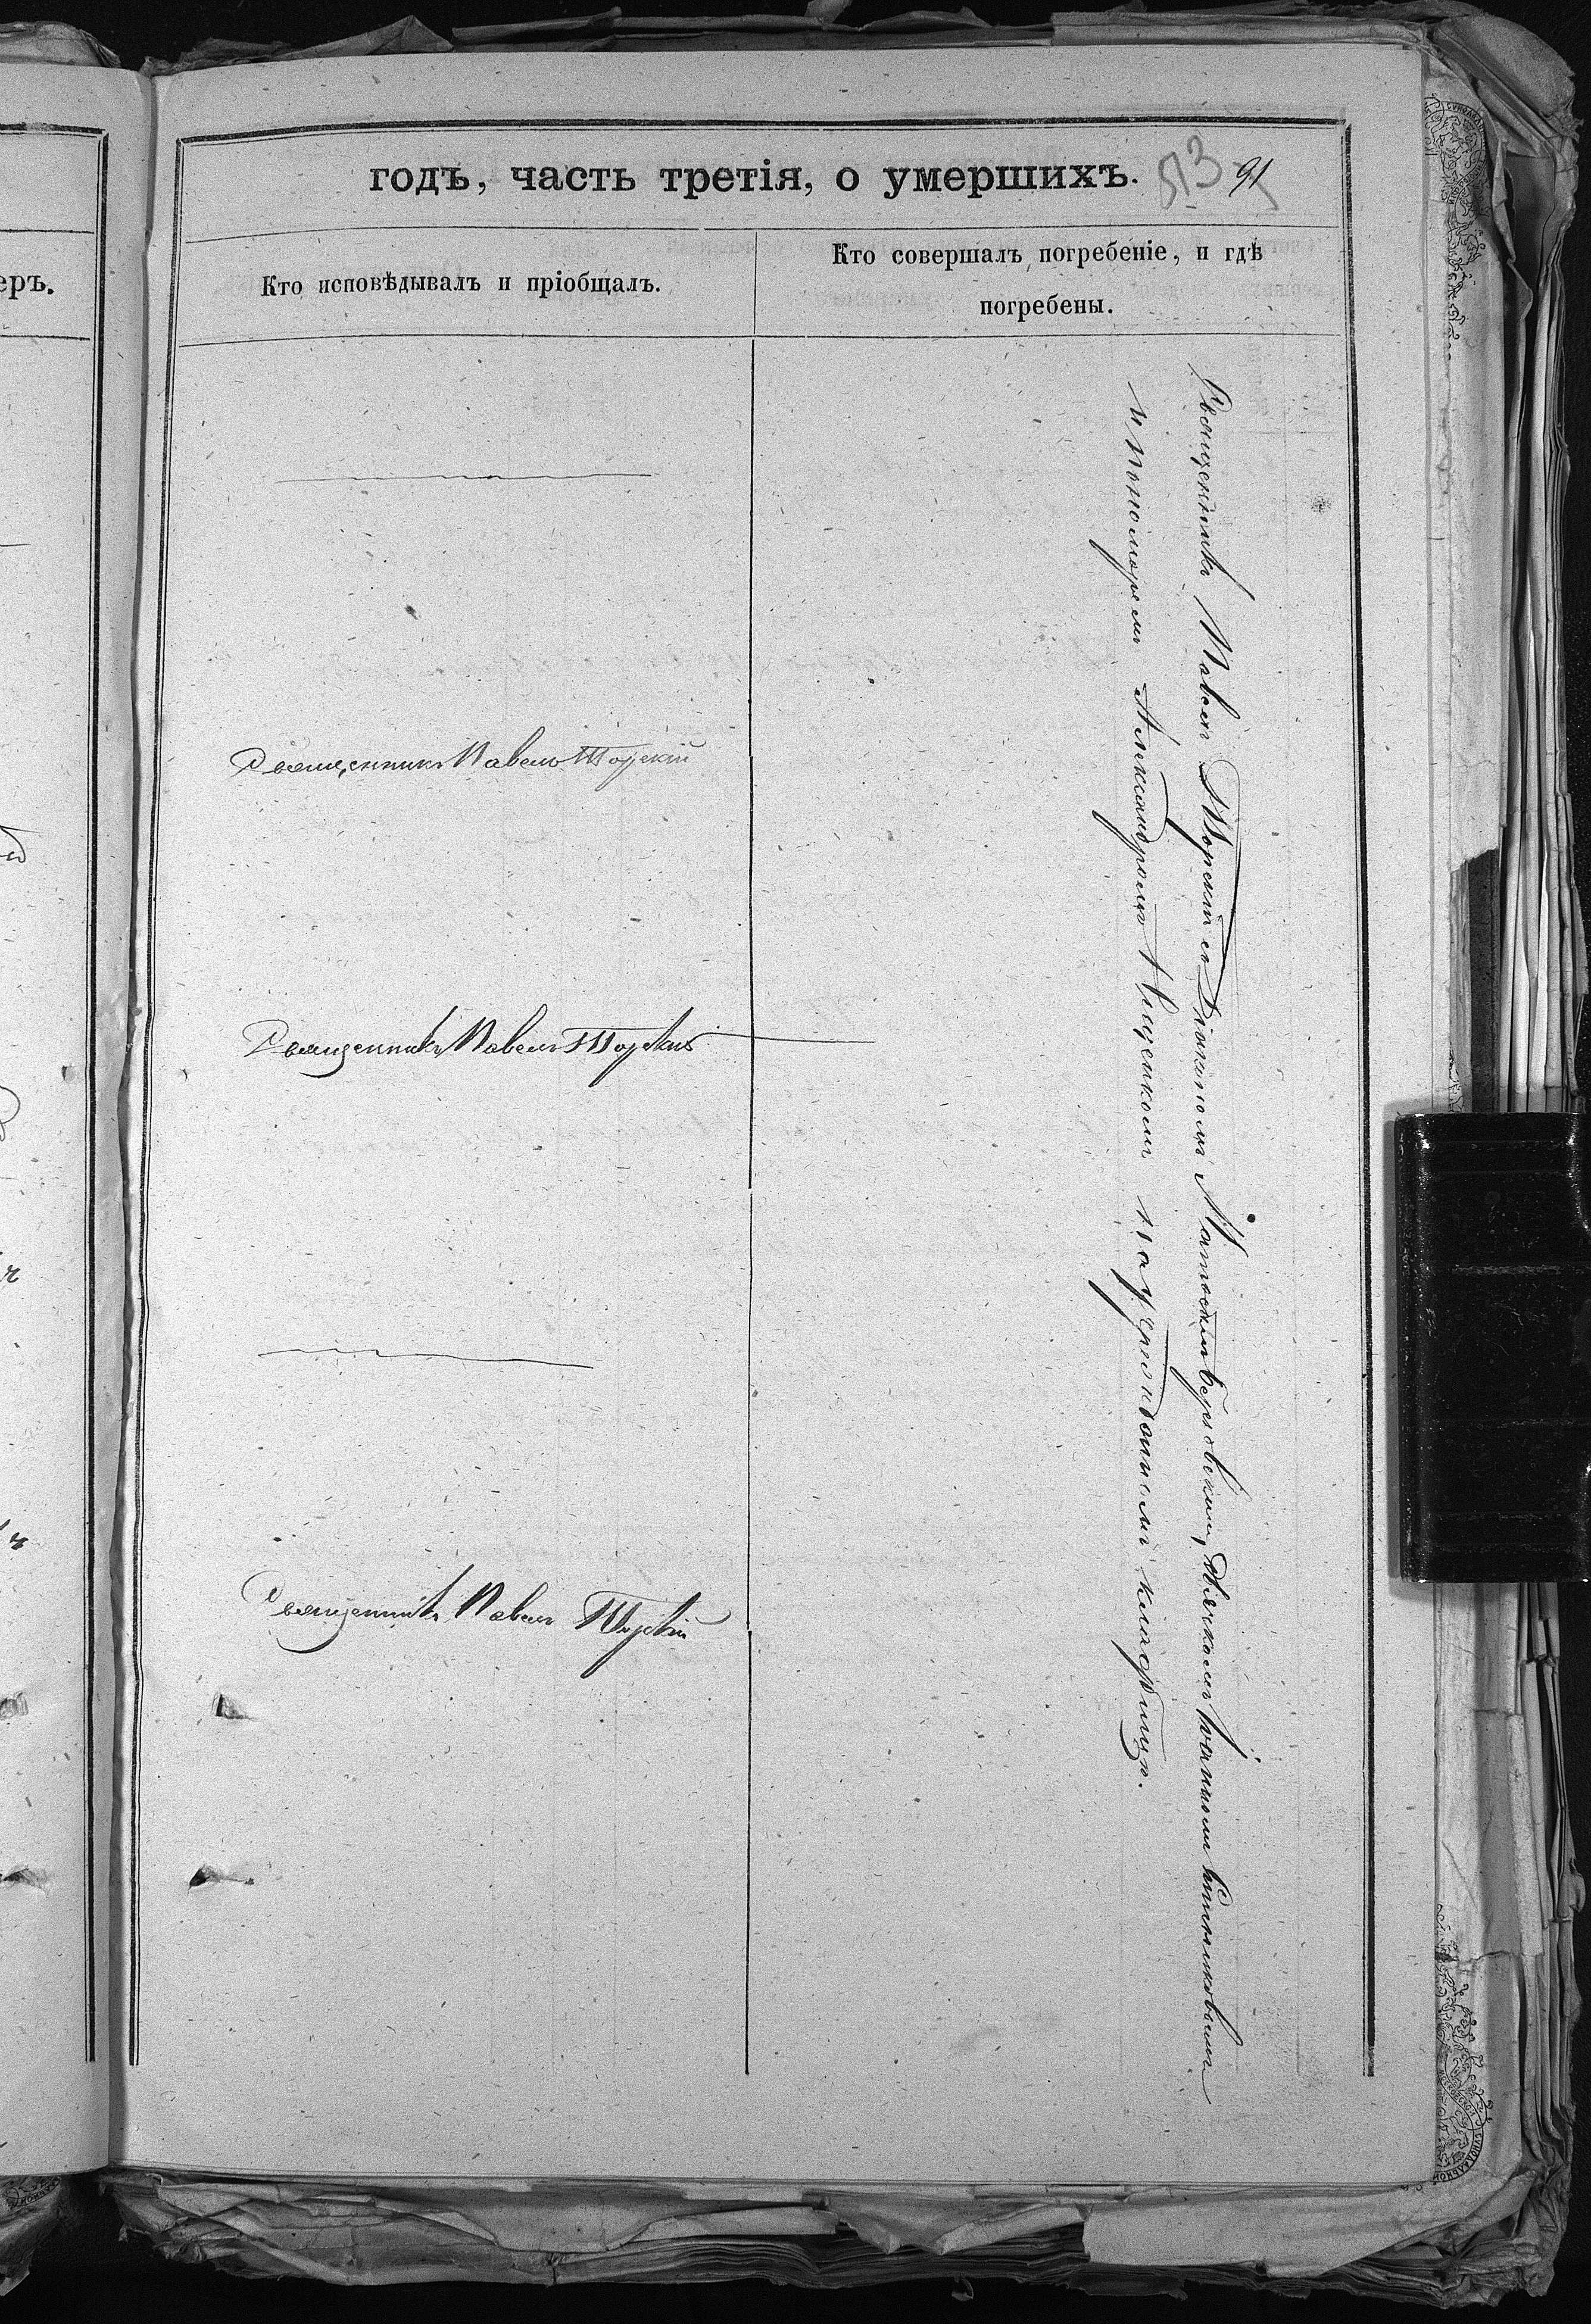 еръ.
годъ, часть третія, о умершихъ.
513
91
Кто исповѣдывалъ и пріобщалъ.
Кто совершалъ погребеніе, и гдѣ
погребены.
Священникъ Павелъ Торскій
Священникъ Павелъ Торскій
Священникъ Павелъ Торскій
Священникъ Павелъ Торскій съ Діакономъ дьячкомъ Іоанномъ
и пономаремъ Александромъ Ивицкомъ на приходскомъ кладбищѣ.